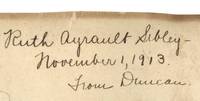 Ruth Ayrault Sibley-
November 1, 1913.
From Duncan.